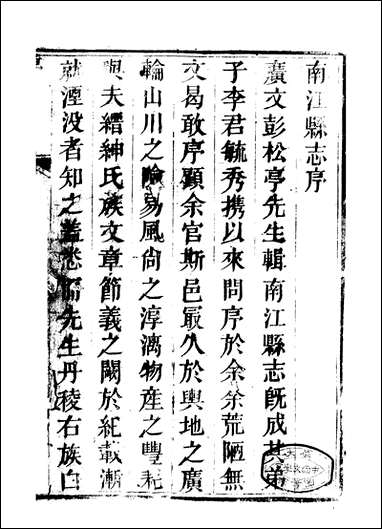 南江縣志序
廣文彭松亭先生輯南江縣志旣成其弟
子李君毓秀携以來問序於余余荒陋無
文曷敢序顧余官斯邑冣久於輿地之廣
輪山川之險易風尙之淳漓物產之豐耗
與夫縉紳氏族文章節義之闕於紀載漸
就湮没者知之葢悉 先生丹稜右族自